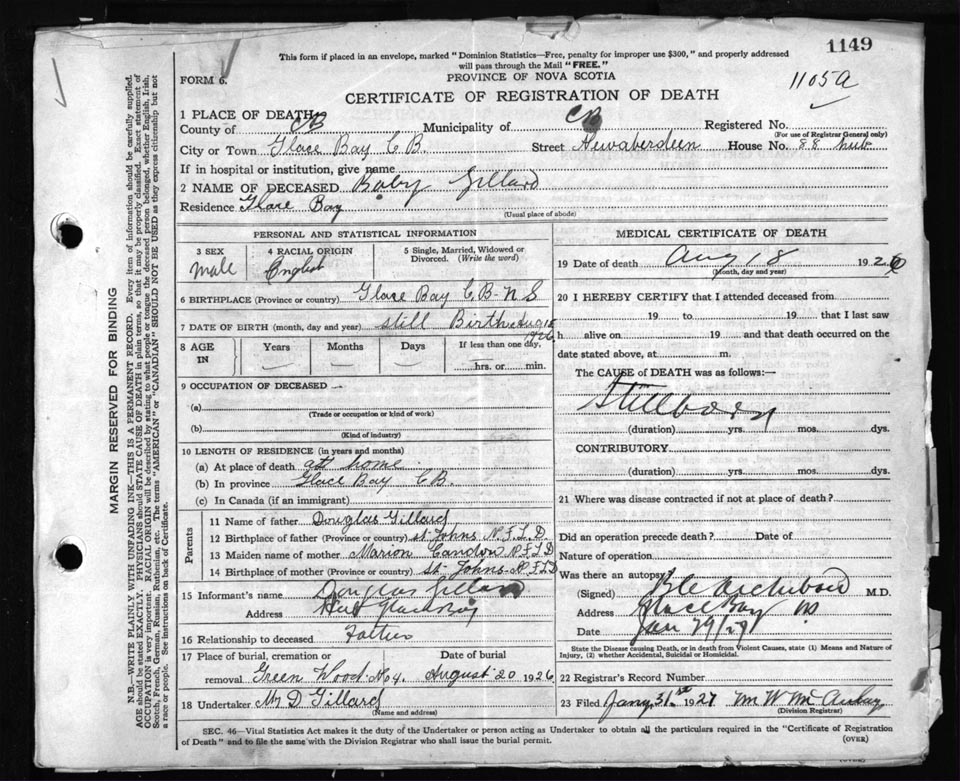 This form if placed in an envelope, marked "Dominion Statistics—Free, penalty for improper use $300," and properly addressed
will pass through the Mail "FREE."
1149
FORM 6.
PROVINCE OF NOVA SCOTIA
1105a
CERTIFICATE OF REGISTRATION OF DEATH
1 PLACE OF DEATH
County of CB Municipality of CB Registered No.
(For use of Registrar General only)
City or Town Glace Bay C B. Street Newaberdeen House No. 88 hub
If in hospital or institution, give name
2 NAME OF DECEASED Baby Gillard
Residence Glace Bay
(Usual place of abode)
PERSONAL AND STATISTICAL INFORMATION
3 SEX
male
4 RACIAL ORIGIN
English
5 Single, Married, Widowed or
Divorced. (Write the word)
6 BIRTHPLACE (Province or country) Glace Bay C B- N S
7 DATE OF BIRTH (month, day and year) still Birth Aug 18
1926
8 AGE
IN
Years
Months
Days
If less than one day,
hrs. or min.
9 OCCUPATION OF DECEASED
(a)
(Trade or occupation or kind of work)
(b)
(Kind of industry)
10 LENGTH OF RESIDENCE (in years and months)
(a) At place of death att home
(b) In province Glace Bay CB.
(c) In Canada (if an immigrant)
Parents
11 Name of father Douglas Gillard
12 Birthplace of father (Province or country) st Johns N.F.L.D.
13 Maiden name of mother Marion N F L D
14 Birthplace of mother (Province or country) St Johns N F L D
15 Informant's name Douglas Gillard
Address Hub Glace Bay
16 Relationship to deceased Father
17 Place of burial, cremation or Date of burial
removal Green Wood No 4. August 20 1926
18 Undertaker Mr D Gillard
(Name and address)
MEDICAL CERTIFICATE OF DEATH
19 Date of death Aug 18 1926
(Month, day and year)
20 I HEREBY CERTIFY that I attended deceased from
19 to 19 that I last saw
h alive on 19 and that death occurred on the
date stated above, at m.
The CAUSE of DEATH was as follows:—
Stillborn
(duration) yrs. mos. dys.
CONTRIBUTORY
(duration) yrs. mos. dys.
21 Where was disease contracted if not at place of death?
Did an operation precede death? Date of
Nature of operation
Was there an autopsy
(Signed) Archibald M.D.
Address Glace Bay NS
Date Jan 29/27
State the Disease causing Death, or in death from Violent Causes, state (1) Means and Nature of
Injury, (2) whether Accidental, Suicidal or Homicidal.
22 Registrar's Record Number
23 Filed Jany 31st 1927 Mm W
(Division Registrar)
SEC. 46—Vital Statistics Act makes it the duty of the Undertaker or person acting as Undertaker to obtain all the particulars required in the "Certificate of Registration
of Death" and to file the same with the Division Registrar who shall issue the burial permit. (OVER)
MARGIN RESERVED FOR BINDING
N.B.—WRITE PLAINLY WITH UNFADING INK—THIS IS A PERMANENT RECORD. Every item of information should be carefully supplied.
AGE should be stated EXACTLY. PHYSICIANS should STATE CAUSE OF DEATH in plain terms, so that it may be properly classified. Exact statement of
OCCUPATION is very important. RACIAL ORIGIN will be described by stating to what people or tongue the deceased person belonged, whether English, Irish,
Scotch, French, German, Russian, Ruthenian, etc. The terms "AMERICAN" or "CANADIAN" SHOULD NOT BE USED as they express citizenship but not
a race or people. See instructions on back of Certificate.